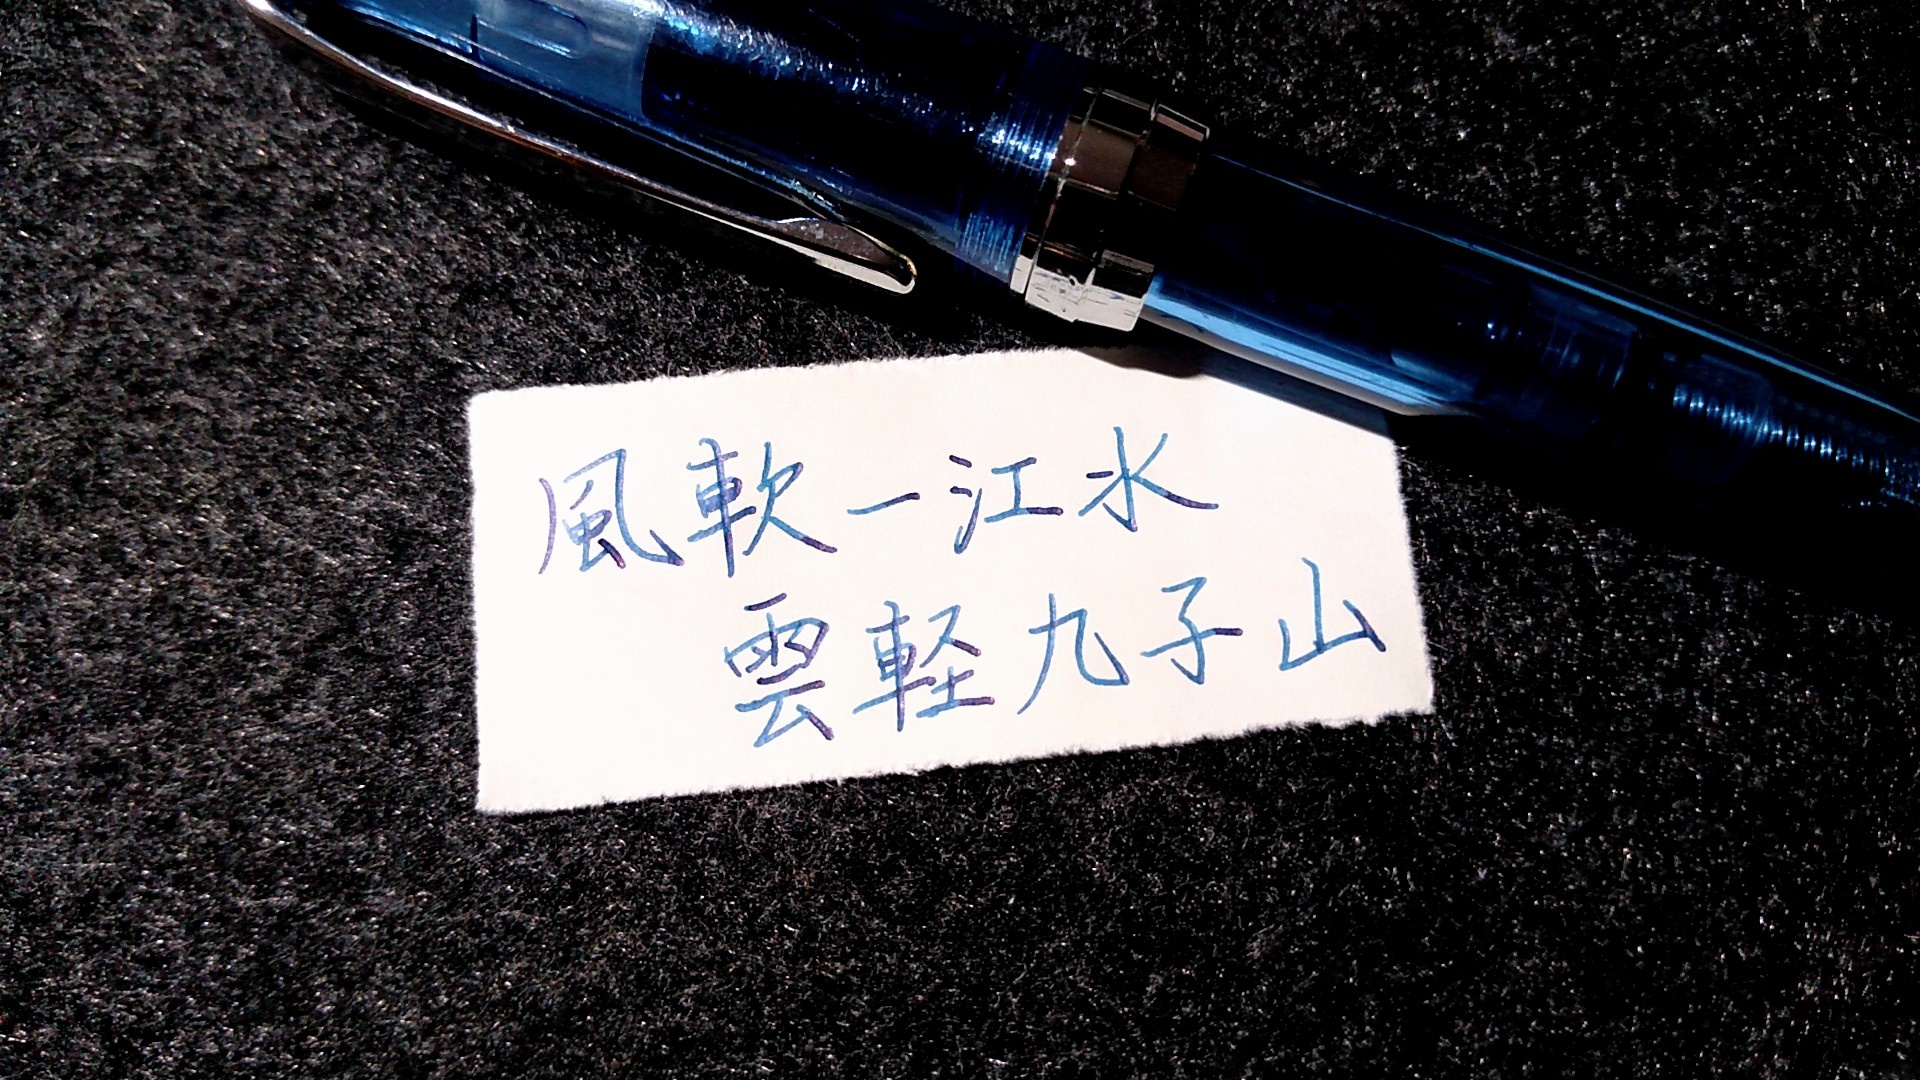 風軟一江水
雲軽九子山